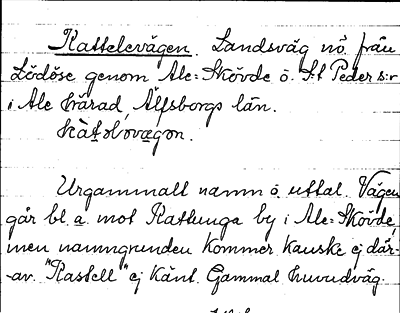 Kattelevägen. Landsväg nö. från
Lödöse genom Ale=Skövde o. S:t Peders:r
i Ale härad, Älfsborgs län.
kàtəlovægən.
Urgammalt namn o. uttal. Vägen
går bl. a mot Rattunga by i Ale=Skövde,
men namngrunden kommer kanske ej där-
-av. "Kastell" ej känt. Gammal huvudväg.